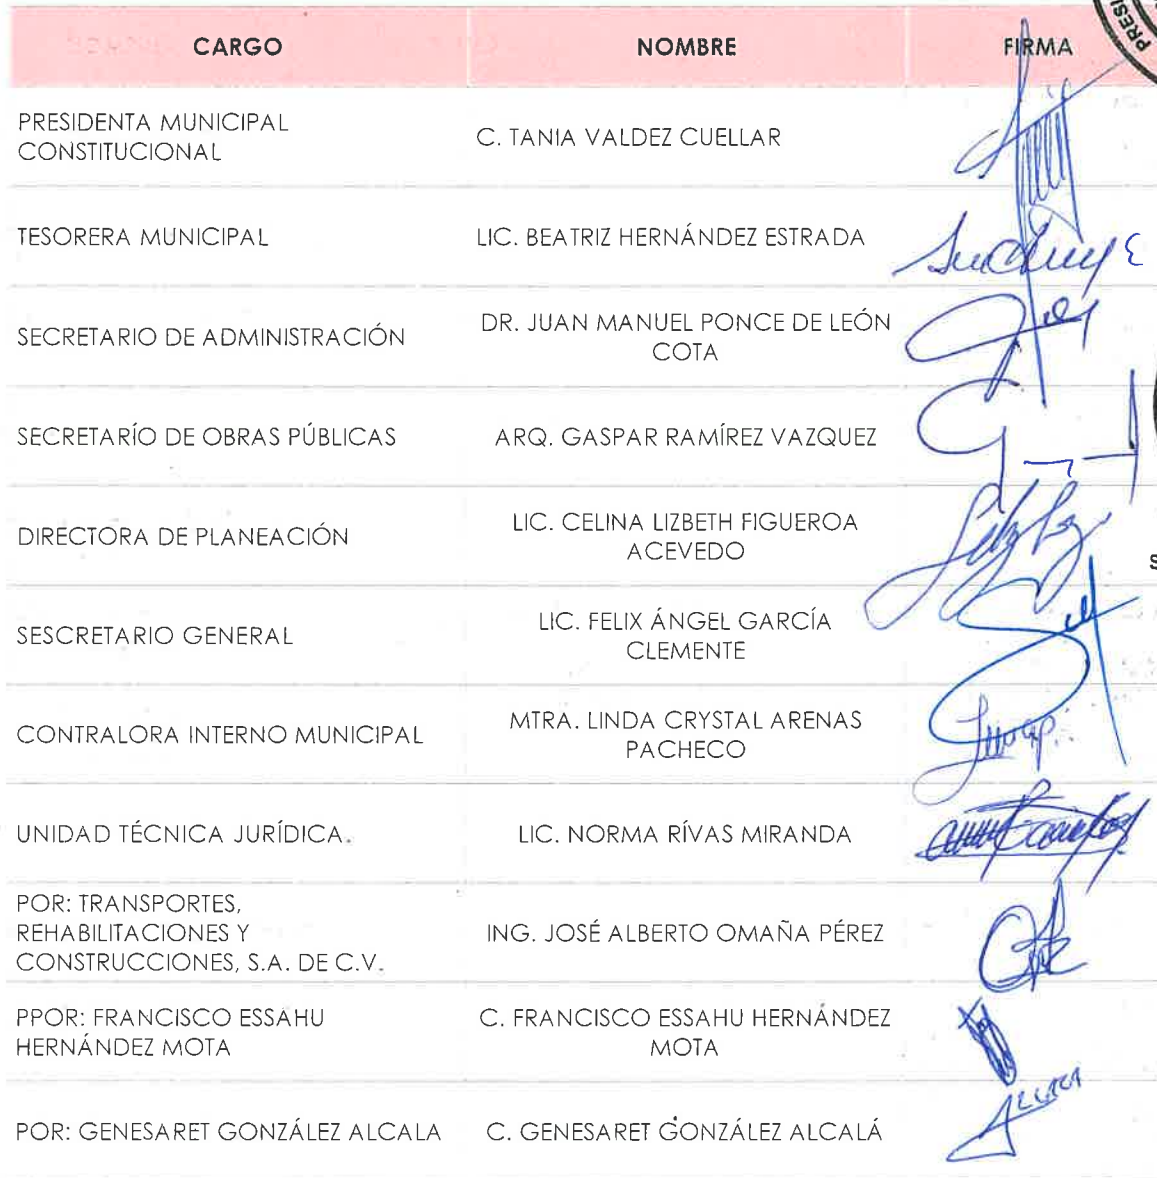 CARGO NOMBRE FIRMA
PRESI
PRESIDENTA MUNICIPAL
CONSTITUCIONAL
C. TANIA VALDEZ CUELLAR
TESORERA MUNICIPAL
LIC. BEATRIZ HERNÁNDEZ ESTRADA
SECRETARIO DE ADMINISTRACIÓN
DR. JUAN MANUEL PONCE DE LEÓN
COTA
SECRETARÍO DE OBRAS PÚBLICAS
ARQ. GASPAR RAMÍREZ VAZQUEZ
DIRECTORA DE PLANEACIÓN
LIC. CELINA LIZBETH FIGUEROA
ACEVEDO
S
SESCRETARIO GENERAL
LIC. FELIX ÁNGEL GARCÍA
CLEMENTE
CONTRALORA INTERNO MUNICIPAL
MTRA. LINDA CRYSTAL ARENAS
PACHECO
UNIDAD TÉCNICA JURÍDICA.
LIC. NORMA RÍVAS MIRANDA
POR: TRANSPORTES,
REHABILITACIONES Y
CONSTRUCCIONES, S.A. DE C.V.
ING. JOSÉ ALBERTO OMAÑA PÉREZ
PPOR: FRANCISCO ESSAHU
HERNÁNDEZ MOTA
C. FRANCISCO ESSAHU HERNÁNDEZ
MOTA
POR: GENESARET GONZÁLEZ ALCALA
C. GENESARET GONZÁLEZ ALCALÁ